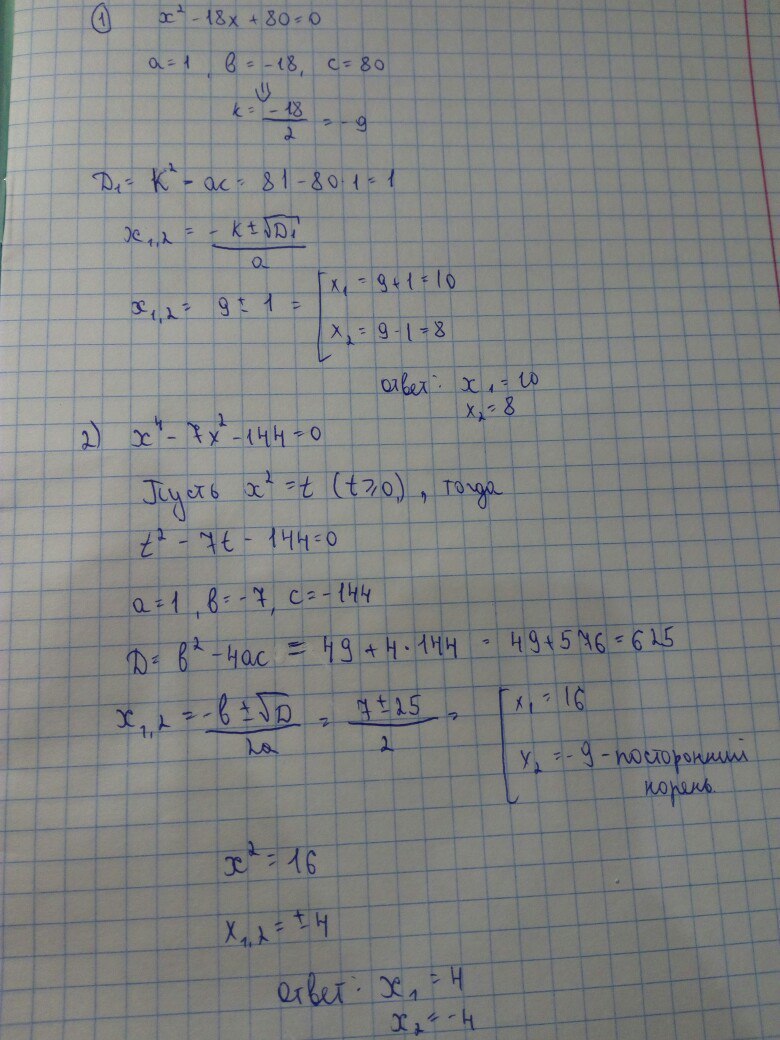 ① x² - 18x + 80 = 0
a = 1, в = -18, c = 80
⇓
k = -18/2 = -9
D₁ = k² - ac = 81 - 80·1 = 1
x₁,₂ = (-k ± √D₁)/a
x₁,₂ = 9 ± 1 = [ x₁ = 9+1 = 10
x₂ = 9-1 = 8
ответ: x₁ = 10
x₂ = 8
2) x⁴ - 7x² - 144 = 0
Пусть x² = t (t ≥ 0), тогда
t² - 7t - 144 = 0
a = 1, в = -7, c = -144
D = в² - 4ac = 49 + 4·144 = 49 + 576 = 625
x₁,₂ = (-в ± √D)/2a = (7 ± 25)/2 = [ x₁ = 16
x₂ = -9 - посторонний
корень.
x² = 16
x₁,₂ = ±4
ответ: x₁ = 4
x₂ = -4